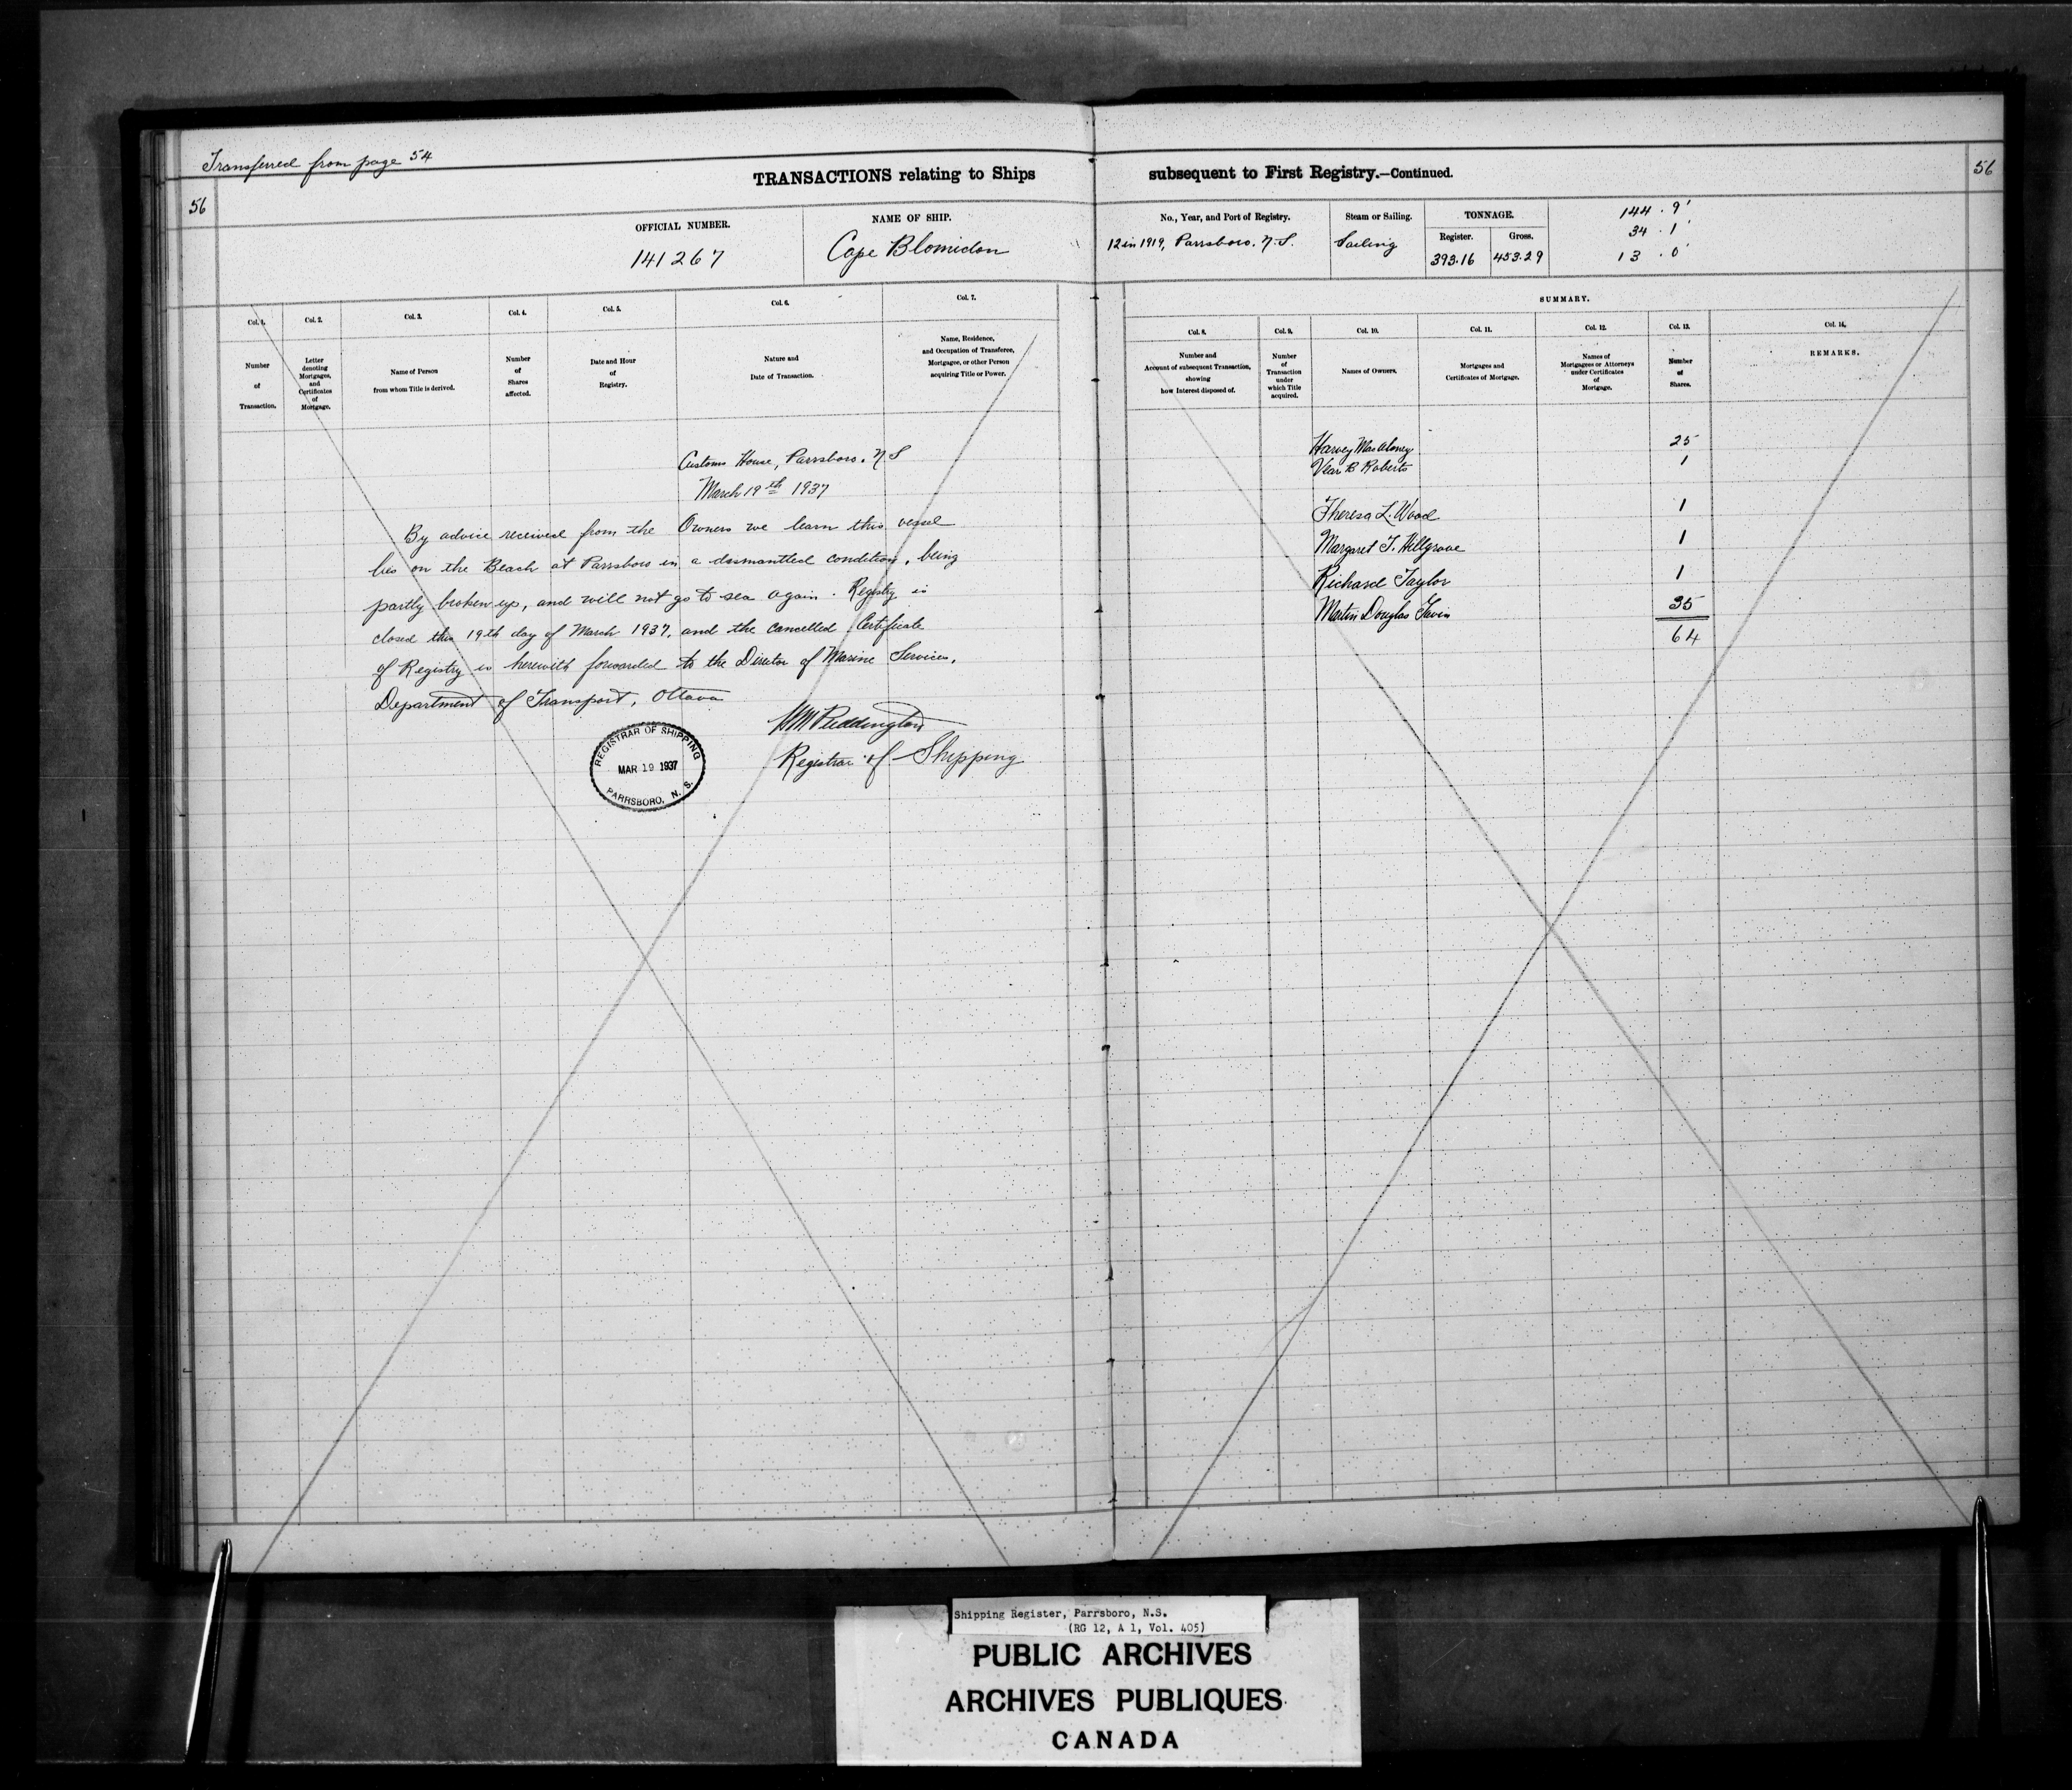 Transferred from page 54
56
TRANSACTIONS relating to Ships
OFFICIAL NUMBER.
141267
NAME OF SHIP.
Cape Blomidon
Col. 1.
Col. 2.
Col. 3.
Col. 4.
Col. 5.
Col. 6.
Col. 7.
Number
of
Transaction.
Letter
denoting
Mortgages,
and
Certificates
of
Mortgage.
Name of Person
from whom Title is derived.
Number
of
Shares
affected.
Date and Hour
of
Registry.
Nature and
Date of Transaction.
Name, Residence,
and Occupation of Transferee,
Mortgagee, or other Person
acquiring Title or Power.
Customs House, Parrsboro. N S
March 19th 1937
By advice received from the Owners we learn this vessel
lies on the Beach at Parrsboro in a dismantled condition, being
partly broken up, and will not go to sea again. Registry is
closed this 19th day of March 1937, and the cancelled Certificate
of Registry is herewith forwarded to the Director of Marine Services,
Department of Transport, Ottawa
Puddington
Registrar of Shipping
REGISTRAR OF SHIPPING
MAR 19 1937
PARRSBORO, N. S.
subsequent to First Registry.—Continued.
56
No., Year, and Port of Registry.
12 in 1919, Parrsboro. N.S.
Steam or Sailing.
Sailing
TONNAGE.
Register.
Gross.
393.16
453.29
144.9'
34.1'
13.0'
SUMMARY.
Col. 8.
Col. 9.
Col. 10.
Col. 11.
Col. 12.
Col. 13.
Col. 14.
Number and
Account of subsequent Transaction,
showing
how Interest disposed of.
Number
of
Transaction
under
which Title
acquired.
Names of Owners.
Mortgages and
Certificates of Mortgage.
Names of
Mortgagees or Attorneys
under Certificates
of
Mortgage.
Number
of
Shares.
REMARKS.
Harvey MacAloney 25
B Roberts 1
Theresa L. Wood 1
Margaret T. Hillgrove 1
Richard Taylor 1
Martin Douglas 35
64
Shipping Register, Parrsboro, N.S.
(RG 12, A 1, Vol. 405)
PUBLIC ARCHIVES
ARCHIVES PUBLIQUES
CANADA